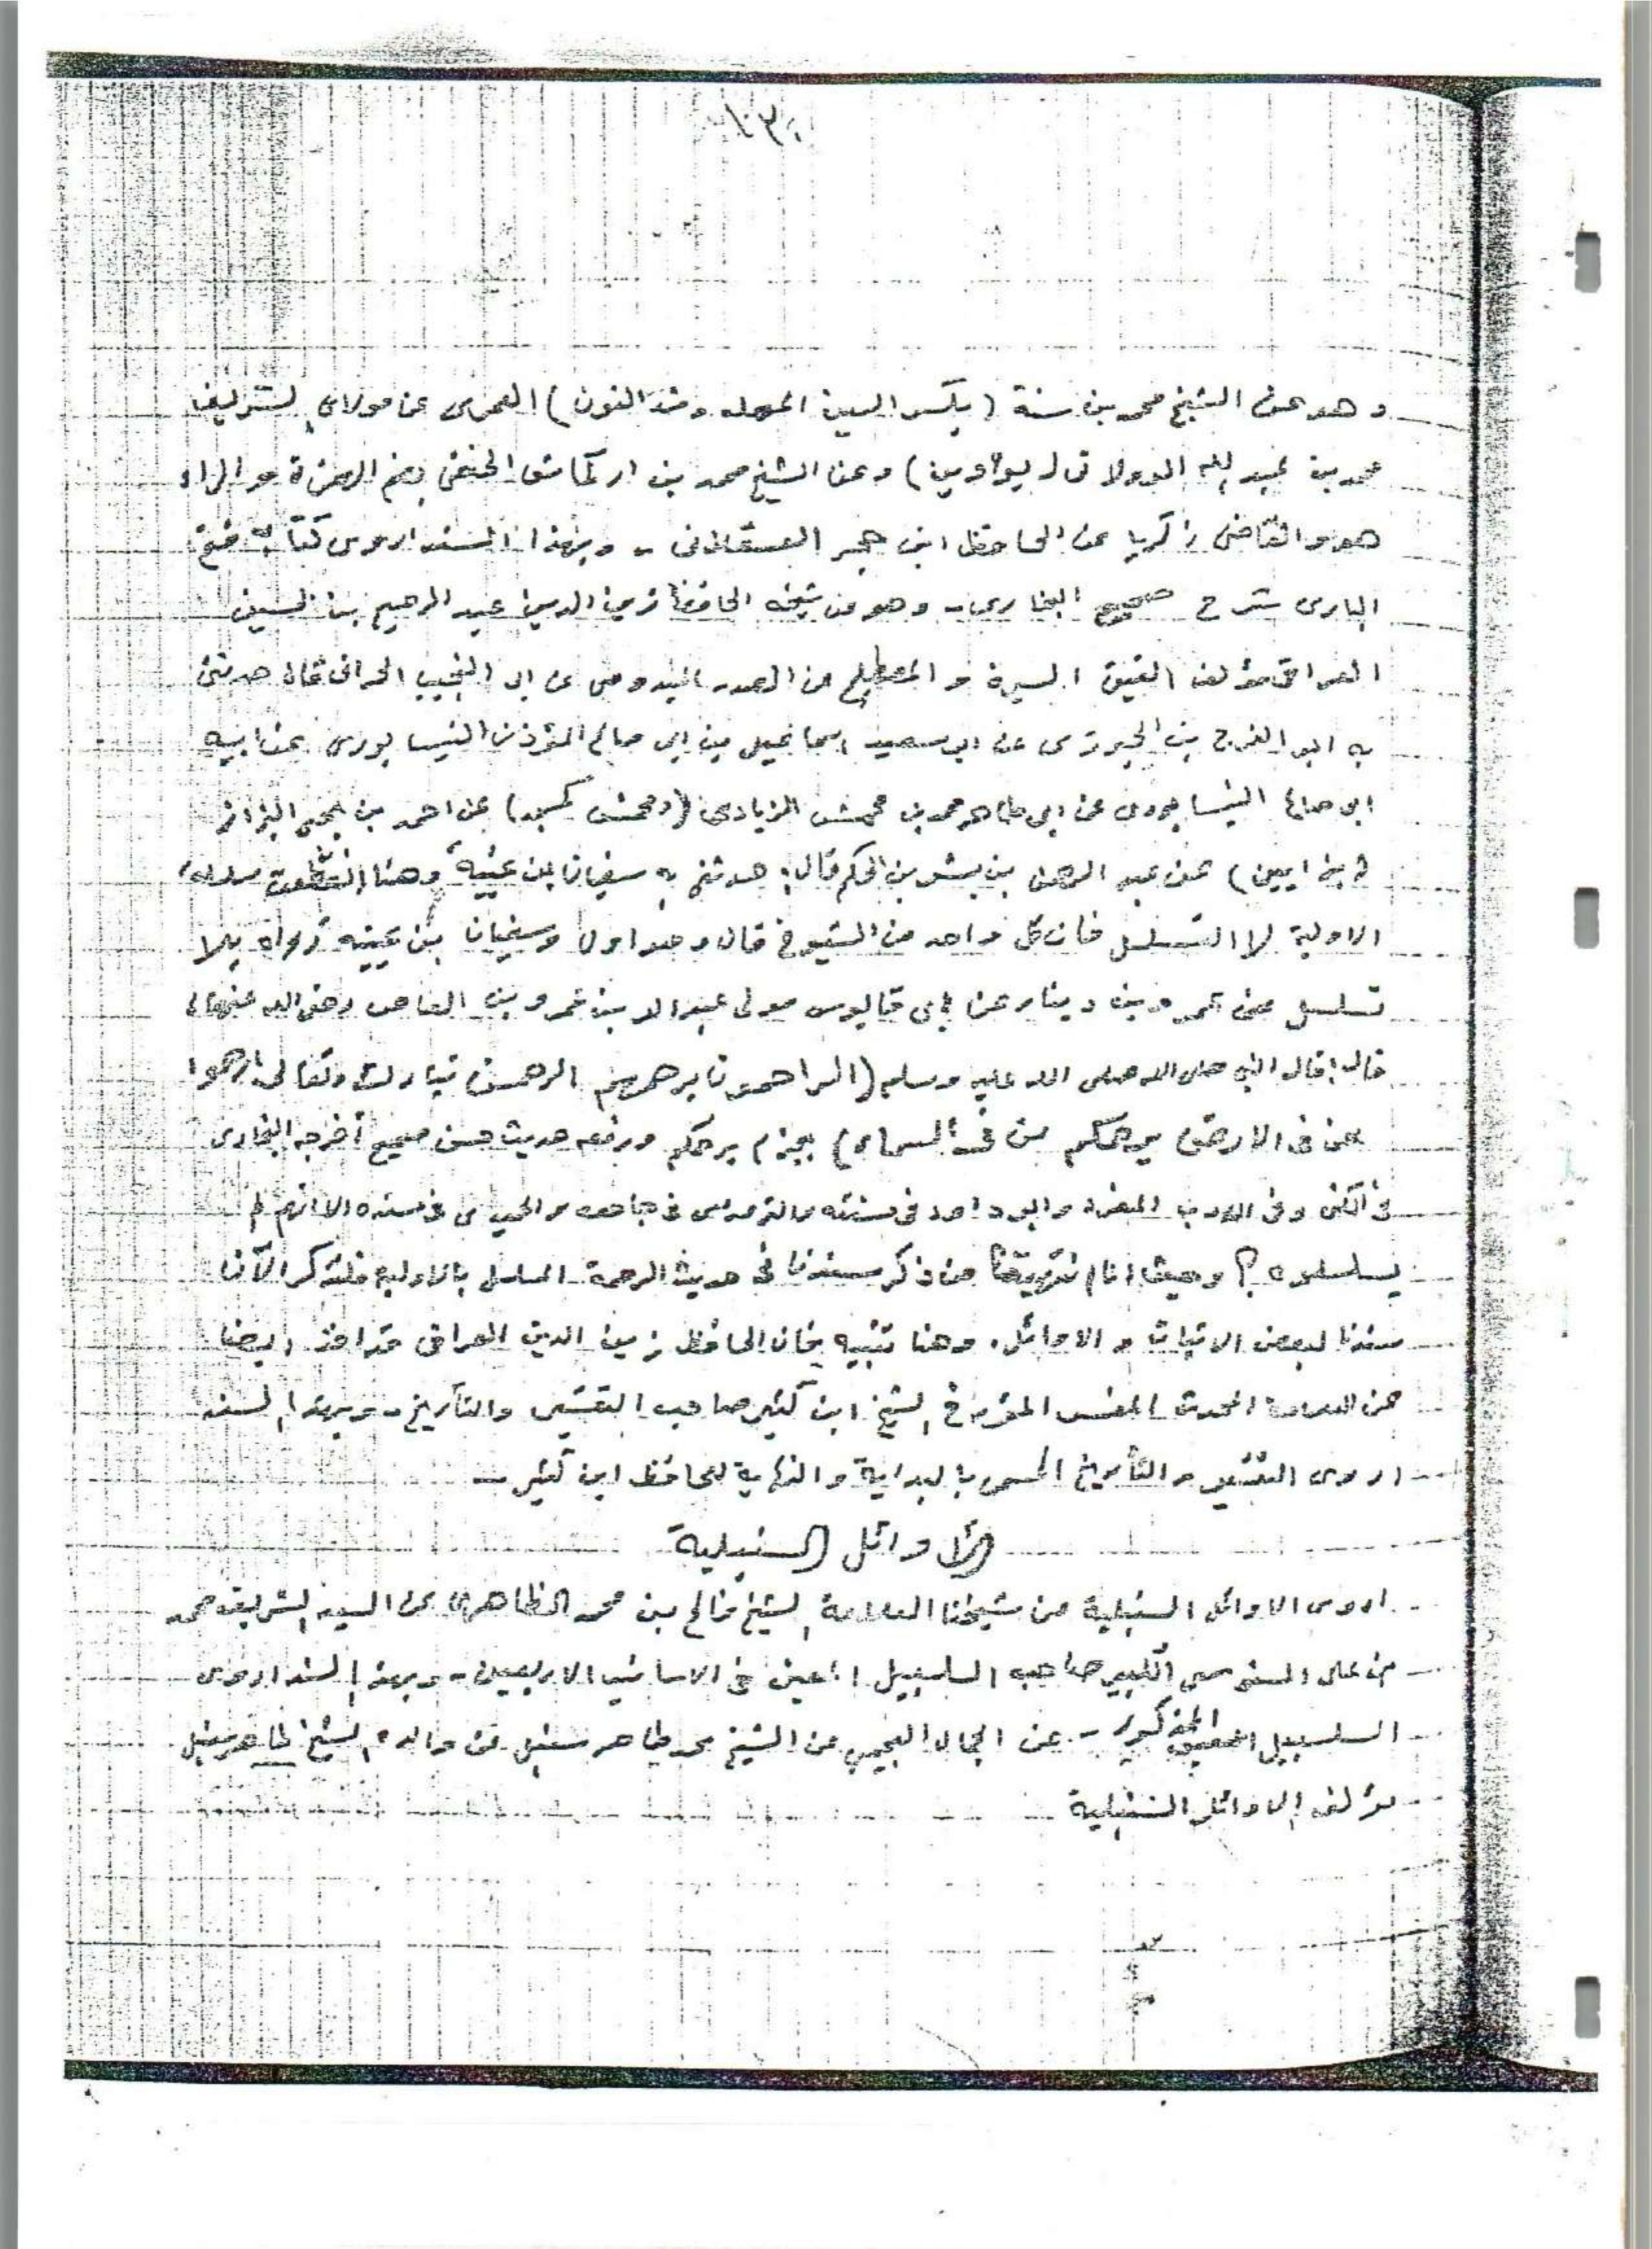 وهو عن الشيخ محمد بن سنة (بكسر السين المهمله وشد النون) العمرى عن مولاى الشريف
محمد بن عبد الله الوولاتى وعن الشيخ محمد بن اركماش الحنفى بضم الهمزة والراء
هو والقاضى زكريا عن الحافظ ابن حجر العسقلانى - وبهذا السند اروى كتابه فتح
البارى شرح صحيح البخارى - وهو عن شيخه الحافظ زين الدين عبد الرحيم بن الحسين
العراقى مؤلف الفيتى السيرة والمصطلح عن الصدر الميدومى عن ابى النجيب الحرانى قال حدثنى
به ابو الفرج بن الجوزى عن ابو سعيد اسماعيل بن ابى صالح المؤذن النيسابورى عن ابيه
ابى صالح النيسابورى عن ابى طاهر محمد بن محمش الزيادى (ومحمش كمسجد) عن احمد بن يحيى البزاز
عن عبد الرحمن بن بشر بن الحكم قال: حدثنى به سفيان بن عيينة وهنا انقطعت سلسلة
الاولية لا التسلسل فان كل واحد من الشيوخ قال وهو اول وسفيان بن عيينه رواه بلا
تسلسل عن عمرو بن دينار عن ابى قابوس مولى عبد الله بن عمرو بن العاص رضى الله عنهما
قال: قال النبى صلى الله عليه وسلم (الراحمون يرحمهم الرحمن تبارك وتعالى ارحموا
من فى الارض يرحمكم من فى السماء) بجزم يرحمكم ورفعه حديث حسن صحيح أخرجه البخارى
فى الكنى وفى الادب المفرد وابو داود فى سننه والترمذى فى جامعه والحميدى فى مسنده الا انهم لم
يسلسلوه؟ وحيث اننا من ذكر سندنا فى حديث الرحمة المسلسل بالاولية فلنذكر الآن
سندنا لبعض الاثبات والاوائل. وهنا تنبيه فان الحافظ زين الدين العراقى قد اخذ ايضا
عن العلامة المحدث المفسر المؤرخ الشيخ ابن كثير صاحب التفسير والتأريخ - وبهذا السند
اروى التفسير والتأريخ المسمى بالبداية والنهاية للحافظ ابن كثير -
الأوائل السنبلية
اروى الاوائل السنبلية عن شيخنا العلامة الشيخ فالح بن محمد الظاهرى عن السيد الشريف محمد
بن على السنوسى الكبير صاحب السلسبيل المعين فى الاسانيد الاربعين - وبهذا السند اروى
السلسبيل المعين المذكور - عن الجمال العجيمى عن الشيخ محمد طاهر سنبل عن والده الشيخ طاهر سنبل
مؤلف الاوائل السنبلية